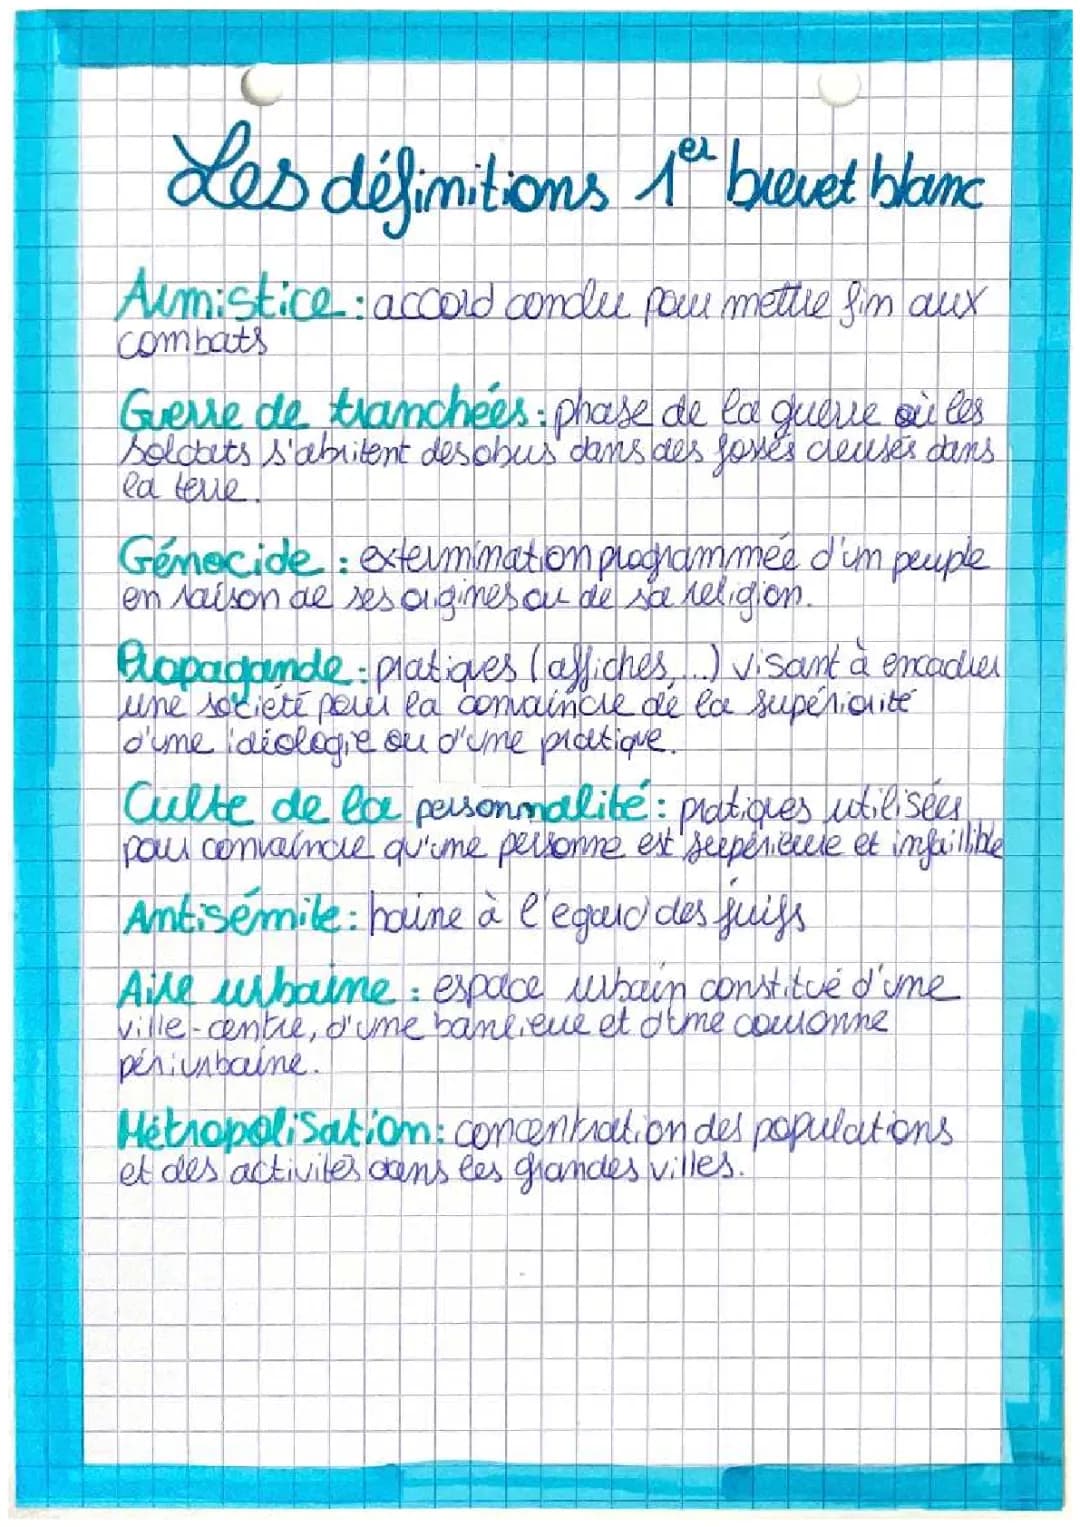 Les définitions 1er brevet blanc
Armistice : accord conclu pour mettre fin aux
combats
Guerre de tranchées : phase de la guerre où les
soldats s'abritent des obus dans des fossés creusés dans
la terre.
Génocide : extermination programmée d'un peuple
en raison de ses origines ou de sa religion.
Propagande : pratiques (affiches,...) visant à encadrer
une société pour la convaincre de la supériorité
d'une idéologie ou d'une pratique.
Culte de la personnalité : pratiques utilisées
pour convaincre qu'une personne est supérieure et infaillible
Antisémite : haine à l'égard des juifs
Aire urbaine : espace urbain constitué d'une
ville-centre, d'une banlieue et d'une couronne
périurbaine.
Métropolisation : concentration des populations
et des activités dans les grandes villes.